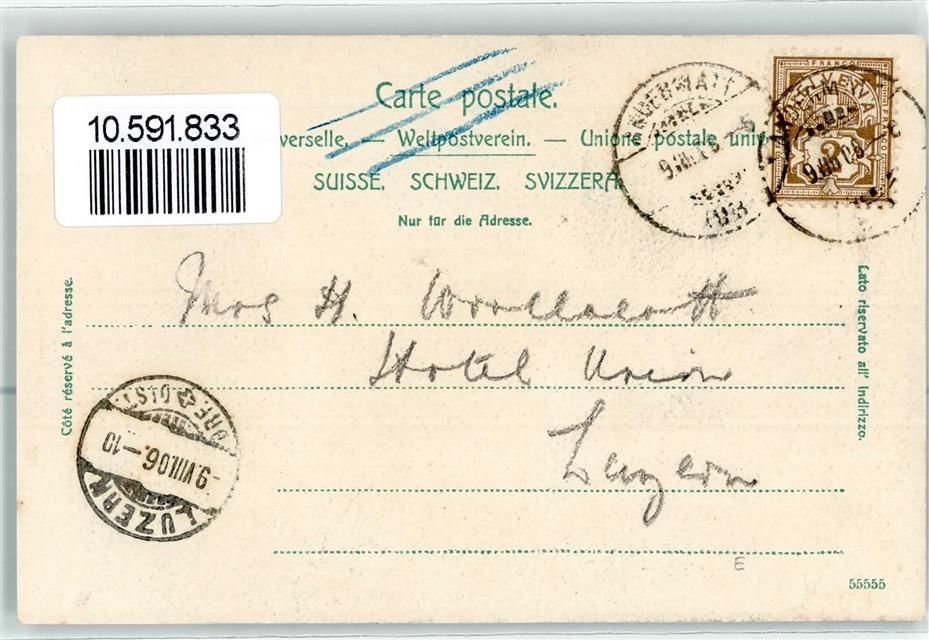 10.591.833
Carte postale.
verselle. — Weltpostverein. — Unione postale univ
SUISSE. SCHWEIZ. SVIZZERA
Nur für die Adresse.
Côté réservé à l'adresse.
Lato riservato all' indirizzo.
FRANCO
ANDERMATT
9.VIII.06
Mrs H. Woollacott
Hotel Union
Luzern
LUZERN
-9.VIII.06.-10
BRF DIST.
E
55555